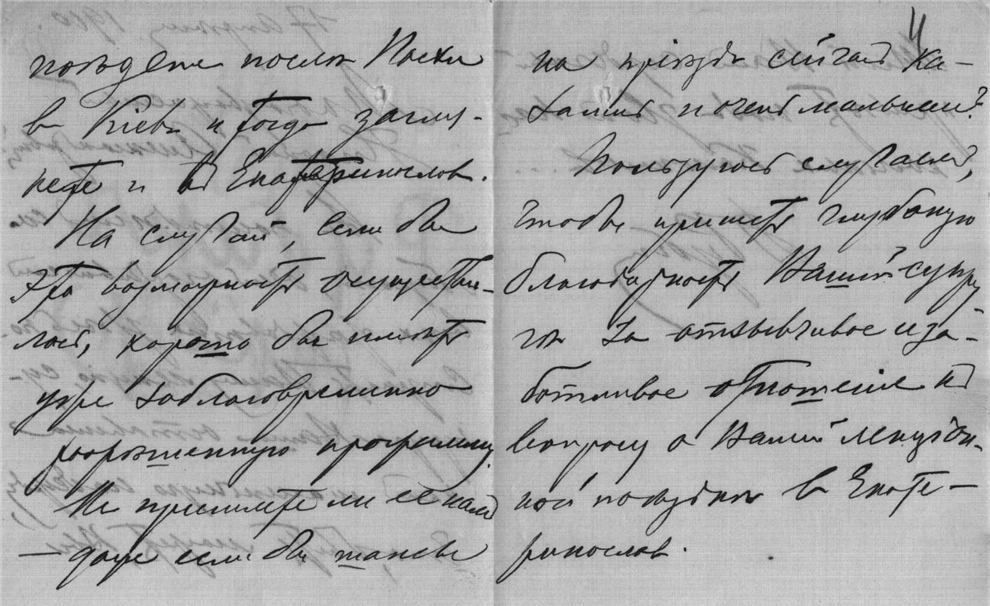 поѣдете послѣ Пасхи
в Кіевъ и тогда загля-
нете и въ Екатеринослав.
На случай, если бы
эта возможность осуществи-
лась, хорошо бы иметь
уже заблаговременно
разрѣшенную программу.
Не пришлете ли ее намъ
— даже если бы шансы
4
на пріѣздъ сейчас ка-
зались и очень малыми?
Пользуюсь случаем,
чтобы принести глубокую
благодарность Вашей супру
гѣ за отзывчивое и за-
ботливое отношеніе къ
вопросу о Вашей лекціон-
ной поѣздкѣ в Екате-
ринослав.